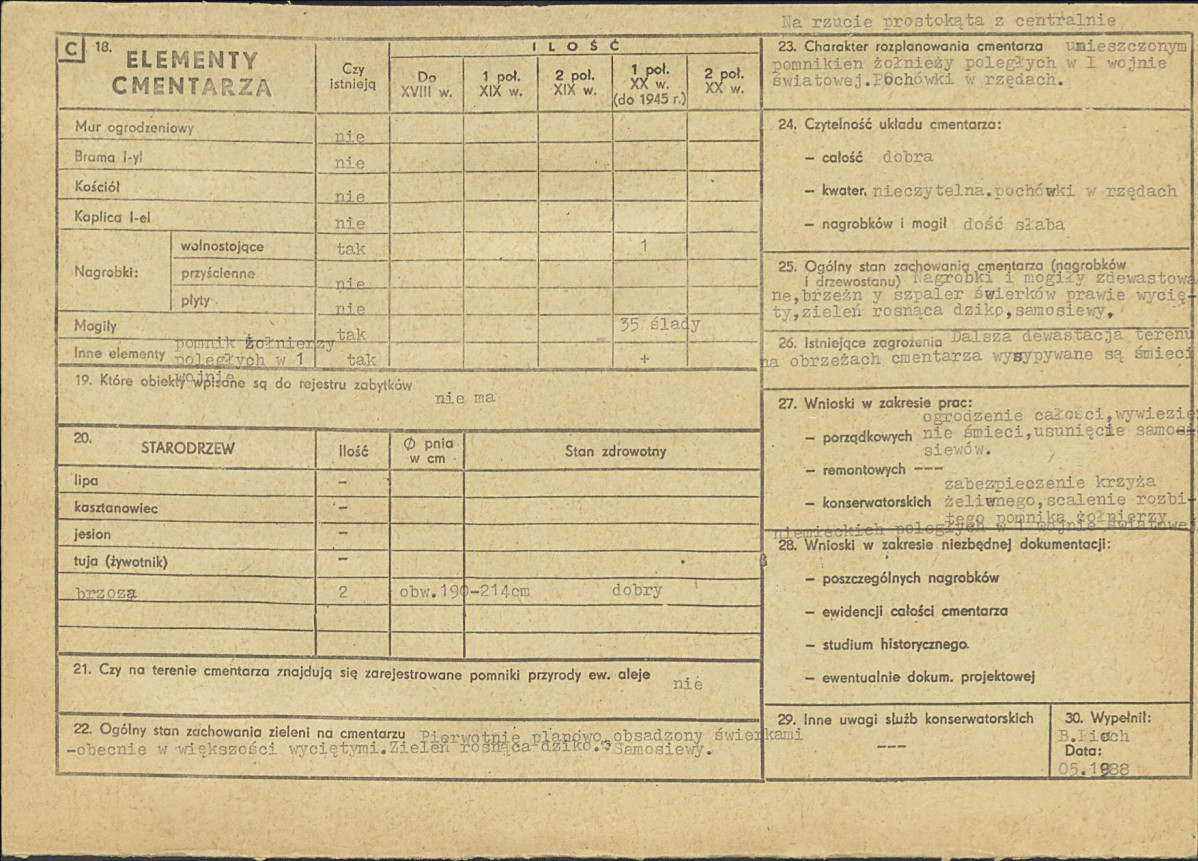 C 18. ELEMENTY CMENTARZA
Czy istnieją
ILOŚĆ
Do XVIII w.
1 poł. XIX w.
2 poł. XIX w.
1 poł. XX w. (do 1945 r.)
2 poł. XX w.
Mur ogrodzeniowy nie
Brama l-yl nie
Kościół nie
Kaplica l-el nie
Nagrobki:
wolnostojące tak 1
przyścienne nie
płyty nie
Mogiły tak 35 ślady
Inne elementy pomnik żołnierzy
poległych w 1 tak +
wojnie
19. Które obiekty wpisane są do rejestru zabytków
nie ma
20. STARODRZEW Ilość Ø pnia w cm Stan zdrowotny
lipa –
kasztanowiec –
jesion –
tuja (żywotnik) –
brzoza 2 obw.190-214cm dobry
21. Czy na terenie cmentarza znajdują się zarejestrowane pomniki przyrody ew. aleje nie
22. Ogólny stan zachowania zieleni na cmentarzu Pierwotnie planowo obsadzony świerkami
-obecnie w większości wyciętymi.Zieleń rosnąca dziko. Samosiewy.
Na rzucie prostokąta z centralnie
23. Charakter rozplanowania cmentarza umieszczonym
pomnikien żołnieży poległych w I wojnie
światowej.Pochówki w rzędach.
24. Czytelność układu cmentarza:
– całość dobra
– kwater, nieczytelna.pochówki w rzędach
– nagrobków i mogił dość słaba
25. Ogólny stan zachowania cmentarza (nagrobków
i drzewostanu) Nagrobki i mogiły zdewastowa
ne,brzeżn y szpaler świerków prawie wycię-
ty,zieleń rosnąca dziko,samosiewy,
26. Istniejące zagrożenia Dalsza dewastacja terenu
na obrzeżach cmentarza wysypywane są śmieci
27. Wnioski w zakresie prac:
ogrodzenie całości,wywiezie
– porządkowych nie śmieci,usunięcie samo
siewów.
– remontowych ---
zabezpieczenie krzyża
– konserwatorskich żeliwnego,scalenie rozbi-
tego pomnika żołnierzy
niemieckich poległych w 1 wojnie światowej
28. Wnioski w zakresie niezbędnej dokumentacji:
– poszczególnych nagrobków
– ewidencji całości cmentarza
– studium historycznego
– ewentualnie dokum. projektowej
29. Inne uwagi służb konserwatorskich
---
30. Wypełnił:
B.Piech
Data:
05.1988